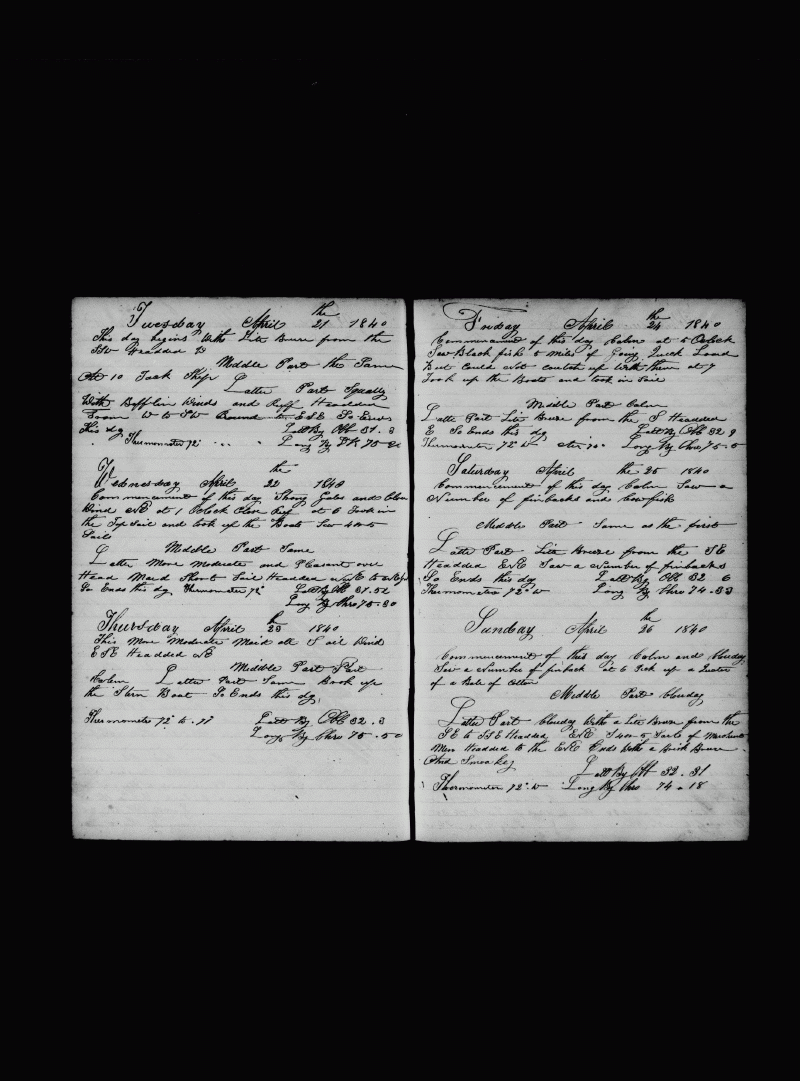 Tuesday April 21 the 1840
This day begins With Lite Breese from the
SSW Headded
Middle Part the Same
At 10 Tack Ship Latter Part Squally
With Bafflin Winds and Ruff Headded
From W to SW Round to ESE So Ends
this day Latt By Ob 31. 3
Thermometer 72° Long By DR 75
Wednesday April 22 the 1840
Commencement of this day Strong Gales and
Wind at 1 Oclock Close Reef at 6 Took in
the Top Sail and took up the Boats Saw 4 or 5
Sails
Middle Part Same
Latter More Moderate and Pleasant over
Head Maid Short Sail Headded
So Ends this day Thermometer 72° Latt By Ob 31.52
Long By Chro 75-30
Thursday April 23 1840
This More Moderate Maid all Sail Wind
ESE Headded NE
Middle Part
Latter Part Same Brook up
the Stern Boat So Ends this day
Thermometer 72° to Latt By Ob 32. 3
Long By Chro 75-50
Friday April 24 the 1840
Commencement of this day Calm at 5 Oclock
Saw Black fish 5 miles of Going Quick Lowd
But Could Not Catch up With them at 7
Took up the Boats and took in Sail
Middle Part Calm
Latte Part Lite Breese from the S Headded
E So Ends this day Latt By Ob 32 9
Thermometer 72° W Air 70° Long By Chro 75-5
Saturday April the 25 1840
Commencement of this day Calm Saw a
Number of finbacks and Cowfish
Middle Part Same as the first
Latte Part Lite Breeze from the SE
Headded ENE Saw a Number of finbacks
So Ends this day Latt By Ob 32 6
Thermometer 72° W Long By Chro 74-33
Sunday April 26 the 1840
Commencement of this day Calm and Cloudy
Saw a Number of finback at 6 Pick up a
of a Bale of Cotton
Middle Part Cloudy
Latter Part Cloudy With a Lite Breese from the
SE to SSE Headded ENE Saw 5 Sails of Merchant
Men Headded to the ENE Ends With a Brisk Breese
And Smoakey Latt By Ob 32-31
Thermometer 72° W Long By Chro 74-18